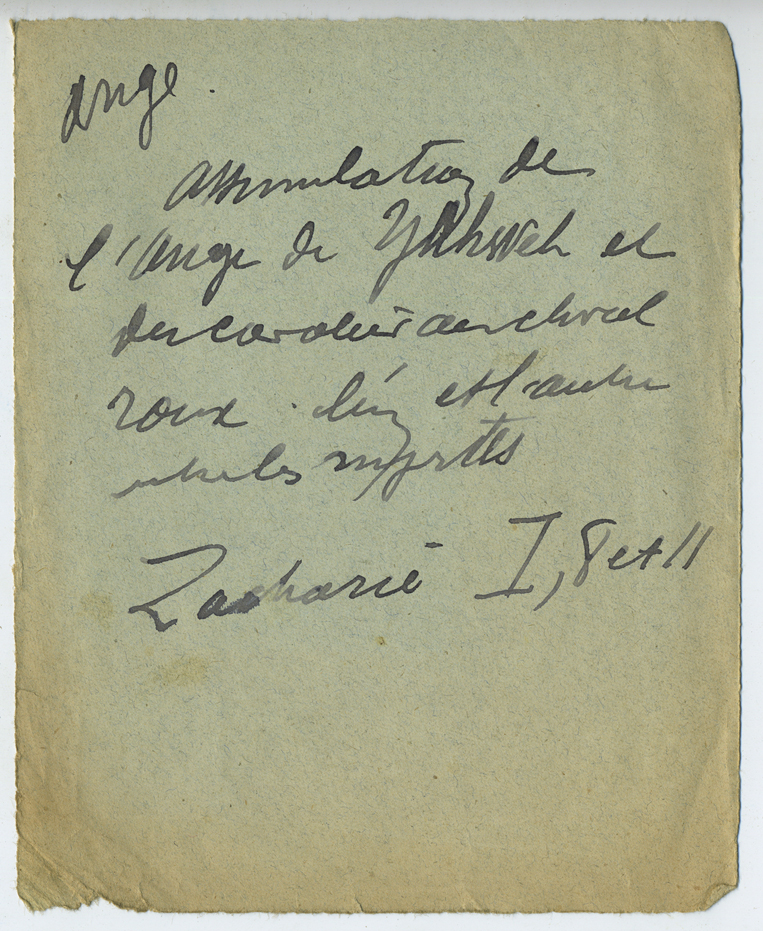 Ange.
Assimilation de
l'Ange de Yahweh et
du cavalier au cheval
roux. l'un et l'autre
entre les myrtes
Zacharie I, 8 et 11